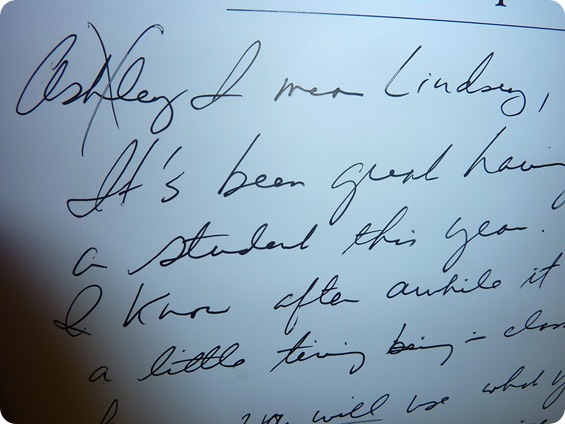 Ashley I mean Lindsey,
It's been great having
a student this year.
I know after awhile it
a little tiring being in class
you will use what